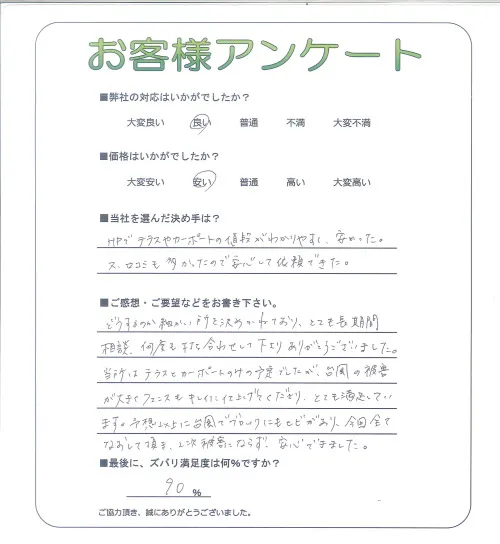 お客様アンケート
■弊社の対応はいかがでしたか？
大変良い 良い 普通 不満 大変不満
■価格はいかがでしたか？
大変安い 安い 普通 高い 大変高い
■当社を選んだ決め手は？
HPでテラスやカーポートの値段がわかりやすく、安かった。
又、口コミも多かったので安心して依頼できた。
■ご感想・ご要望などをお書き下さい。
どうするのか細かい所を決めかねており、とても長期間
相談、何度も打ち合わせして下さりありがとうございました。
当初はテラスとカーポートのみの予定でしたが、台風の被害
が大きくフェンスもキレイに仕上げてくださり、とても満足してい
ます。予想以上に台風でブロックにもヒビがあり、今回全て
なおして頂き、二次被害にならず、安心できました。
■最後に、ズバリ満足度は何%ですか？
90 %
ご協力頂き、誠にありがとうございました。